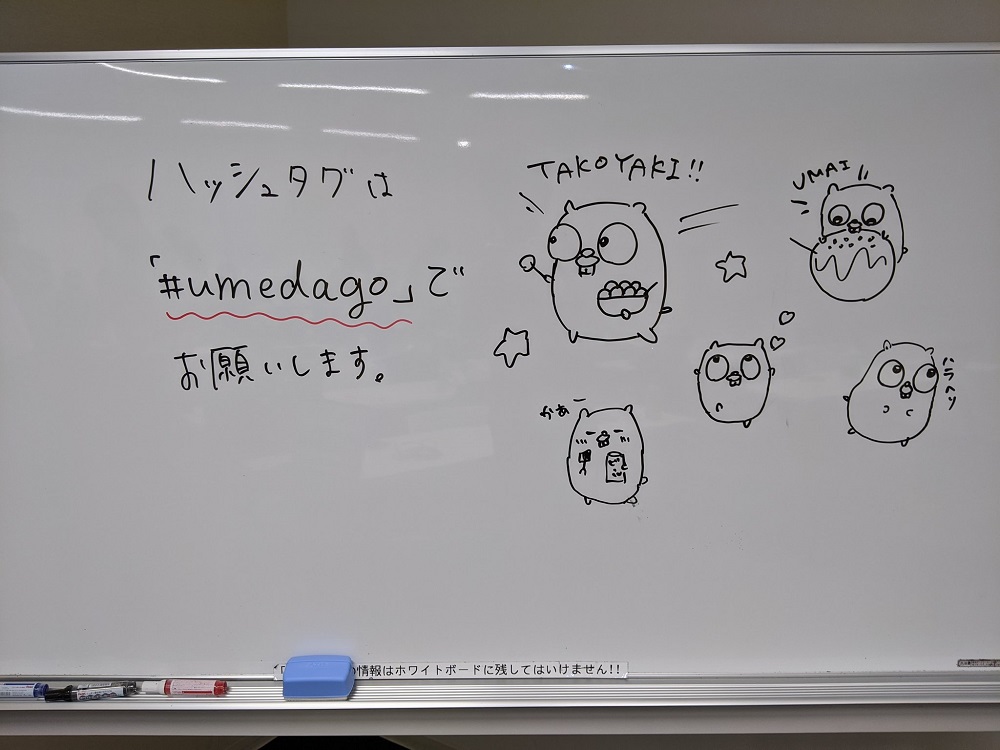 ハッシュタグは
「#umedago」で
お願いします。
TAKOYAKI!!
UMAI!!
ハラヘリ
かぁー
の情報はホワイトボードに残してはいけません!!